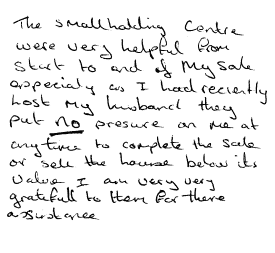 The smallholding Centre
were very helpful from
start to end of my sale
especialy as I had reciently
lost my husband they
put no presure on me at
anytime to complete the sale
or sell the house below its
value I am very very
gratefull to them for there
assistance